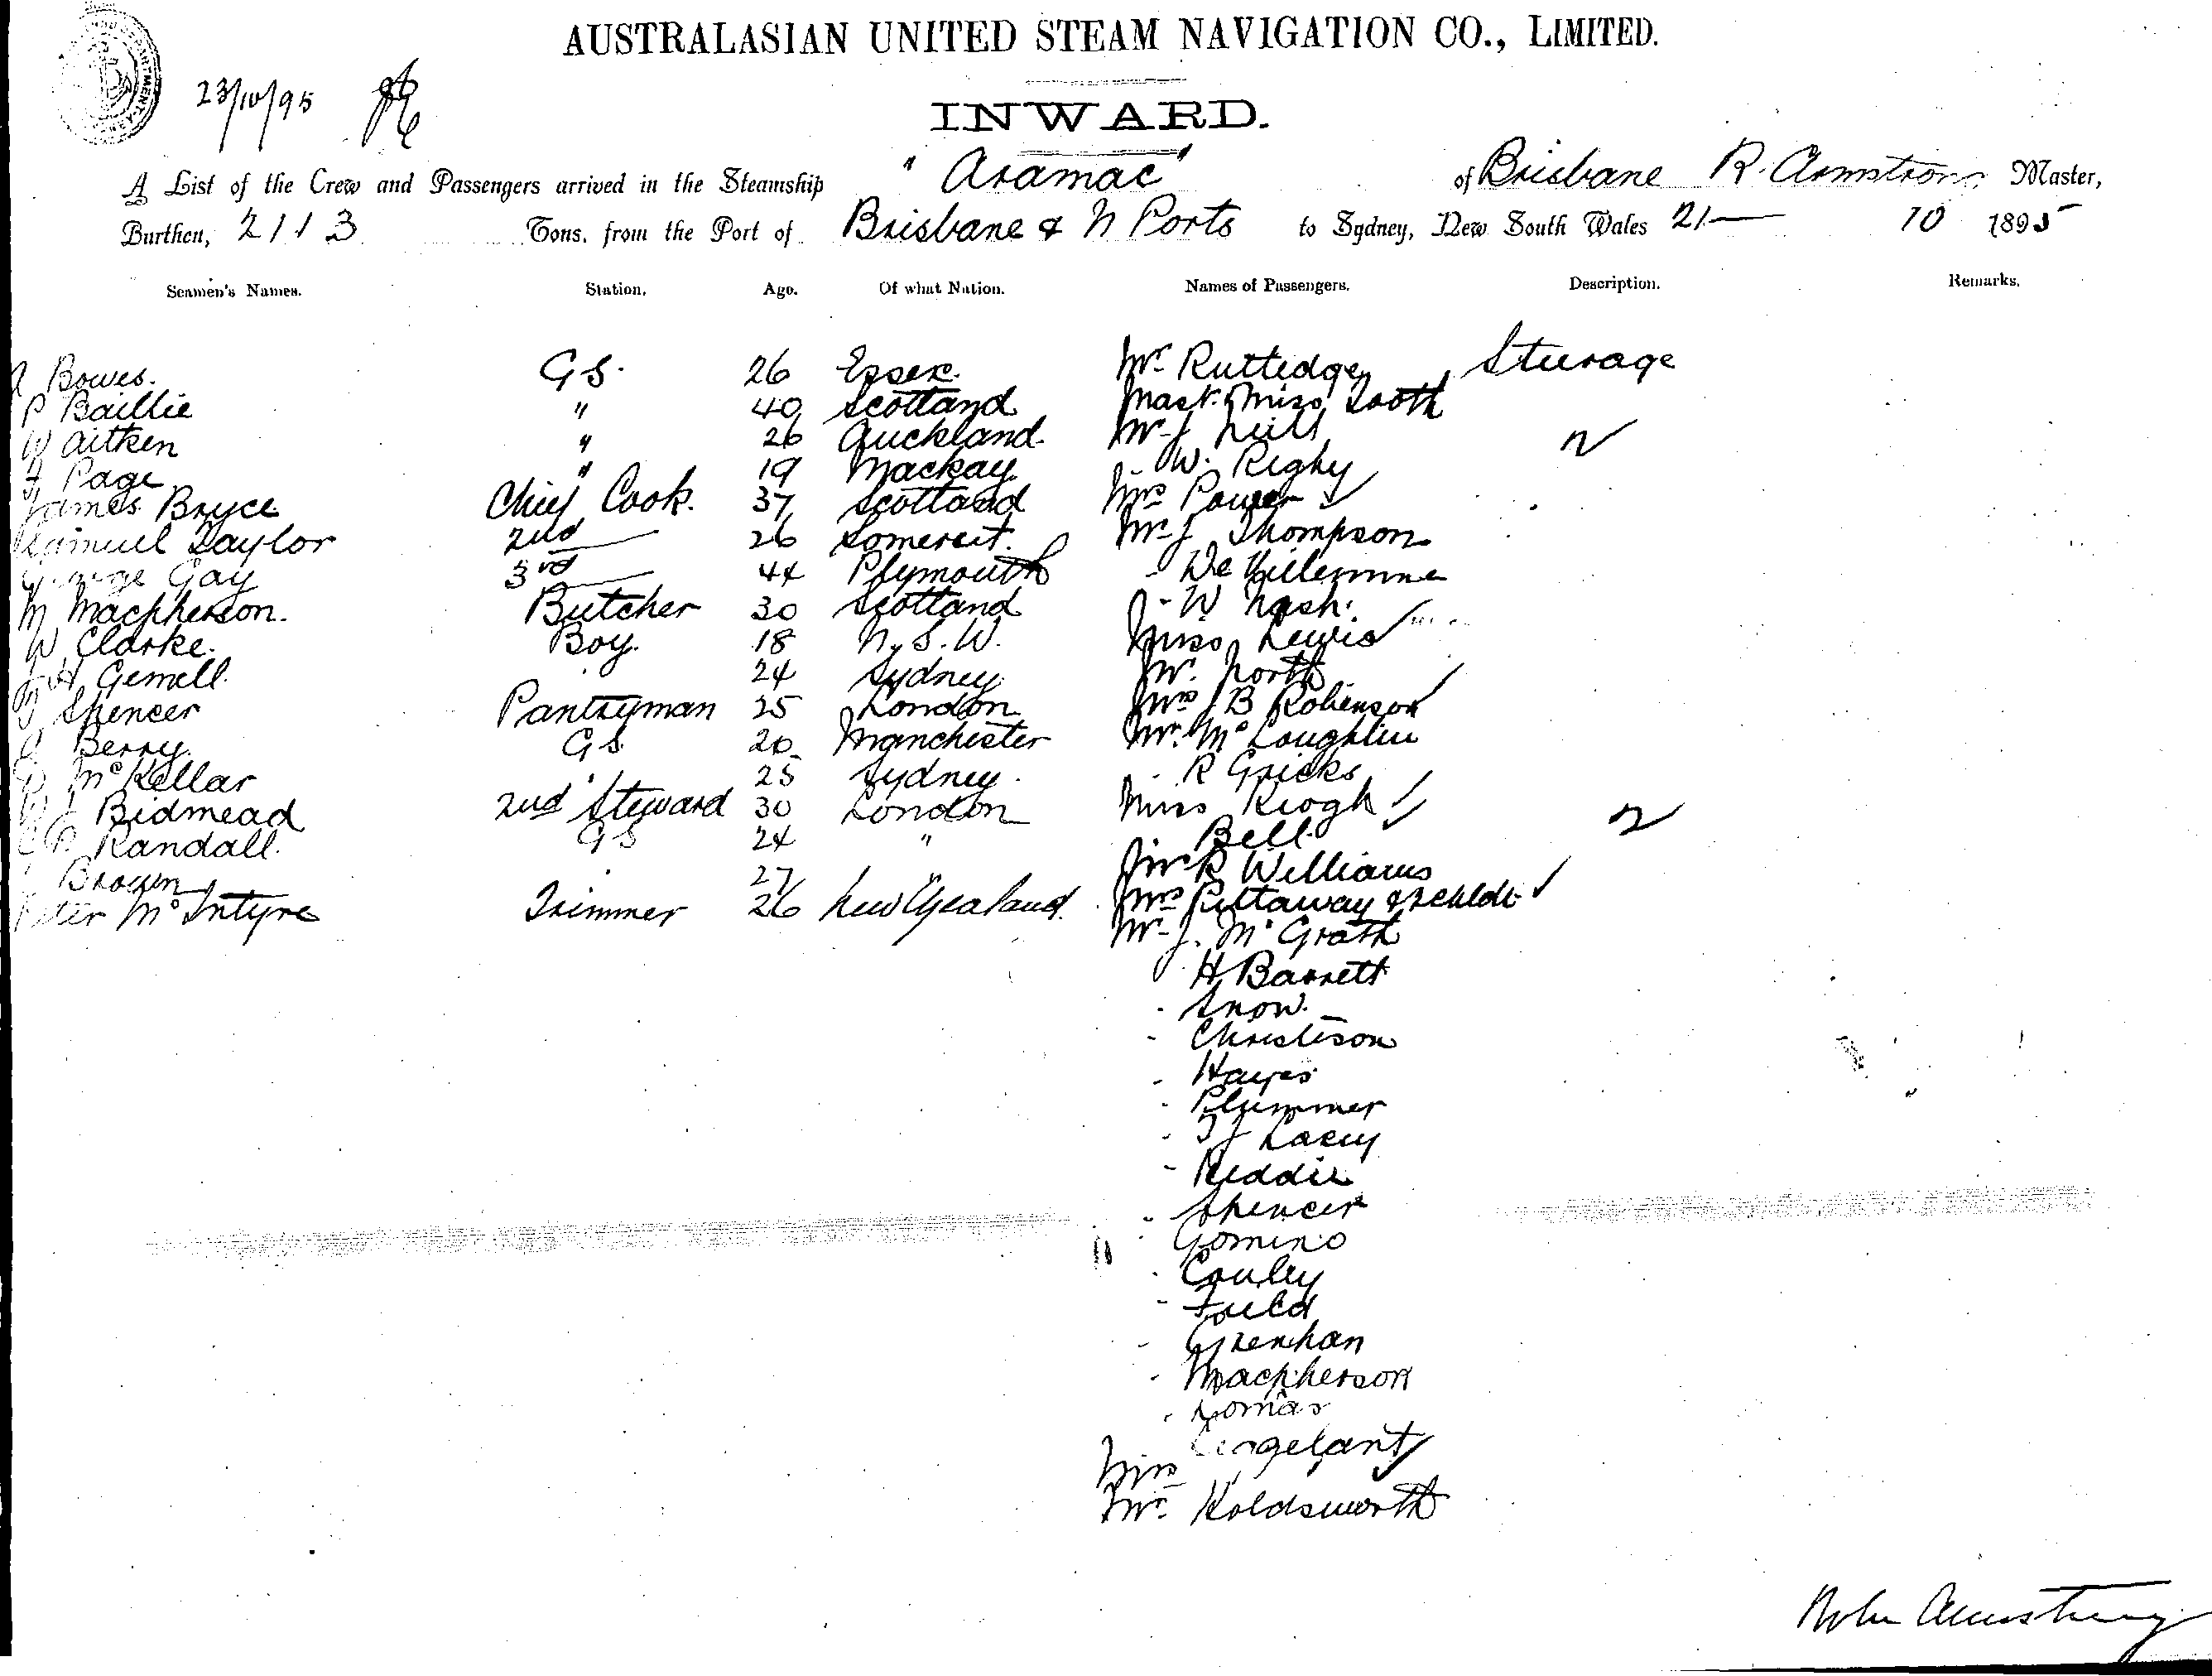 AUSTRALASIAN UNITED STEAM NAVIGATION CO., LIMITED.
23/10/95
INWARD.
A List of the Crew and Passengers arrived in the Steamship "Aramac" of Brisbane R. Armstrong Master,
Burthen, 2113 Tons, from the Port of Brisbane & N Ports to Sydney, New South Wales 21 10 1895
Seamen's Names. Station. Age. Of what Nation. Names of Passengers. Description. Remarks.
Bowes. G S. 26 Essex. Mr Ruttedge Steerage
P Baillie " 40 Scotland Mast. & Miss Tooth
W Aitken " 26 Auckland Mr J Neill
F Page " 19 Mackay - W. Righy
James Bryce Chief Cook. 37 Scotland Mrs Power
Samuel Taylor 2nd — 26 Somerset. Mr J Thompson
George Gay 3rd — 44 Plymouth -
M Macpherson. Butcher 30 Scotland - W Nash.
W Clarke. Boy. 18 N.S.W. Miss Lewis
H Gemell. 24 Sydney Mr. North
Spencer Pantryman 25 London Mrs B Robinson
Berry. G S. 20 Manchester Mr. McLoughlin
McKellar 25 Sydney. - R Gricks
Bidmead 2nd Steward 30 London Miss Keogh
Randall. G S 24 " Bell.
Brown 27 " Mr R Williams
Peter McIntyre Trimmer 26 New Zealand. Mrs Pittaway & 2 chldn
Mr J. McGrath
H Barrett
- Snow.
- Christison
- Hayes
- Plummer
- T J Lacey
- Reddie
- Spencer
- Gomino
- Conley
- Field
- Grenhan
- Macpherson
- Lomas
geland
Mrs "
Mr. Holdsworth
Armstrong